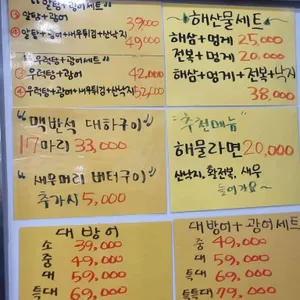 "알탕+광어세트"
③ 알탕+광어 39,000
④ 알탕+광어+새우튀김+산낙지 49,000
"우럭탕+광어세트"
③ 우럭탕+광어 42,000
④ 우럭탕+광어+새우튀김+산낙지 52,000
해산물세트
해삼+멍게 25,000
전복+멍게 20,000
해삼+멍게+전복+낙지
38,000
맥반석 대하구이
17마리 33,000
"새우머리 버터구이"
추가시 5,000
"추천메뉴"
해물라면 20,000
산낙지, 활전복, 새우
들어가요~
대방어
소 39,000
중 49,000
대 59,000
특대 69,000
대방어+광어세트
중 49,000
대 59,000
특대 69,000
특특대 79,000